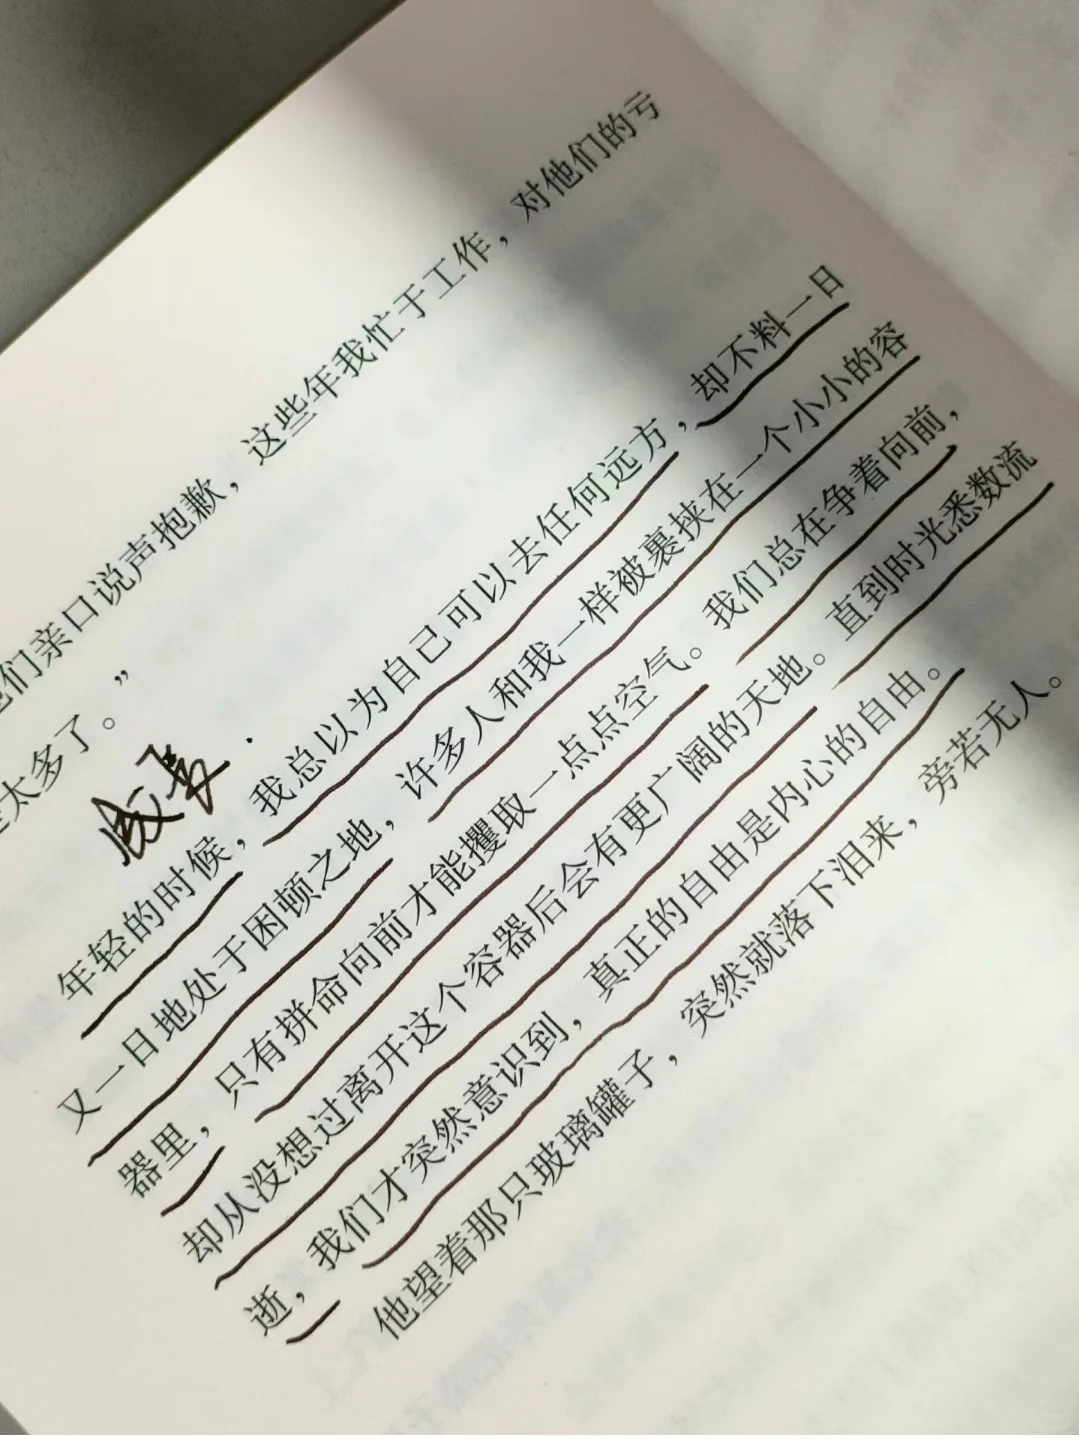 们亲口说声抱歉，这些年我忙于工作，对他们的亏
太多了。”
成长
年轻的时候，我总以为自己可以去任何远方，却不料一日
又一日地处于困顿之地，许多人和我一样被裹挟在一个小小的容
器里，只有拼命向前才能攫取一点点空气。我们总在争着向前，
却从没想过离开这个容器后会有更广阔的天地。直到时光悉数流
逝，我们才突然意识到，真正的自由是内心的自由。
他望着那只玻璃罐子，突然就落下泪来，旁若无人。